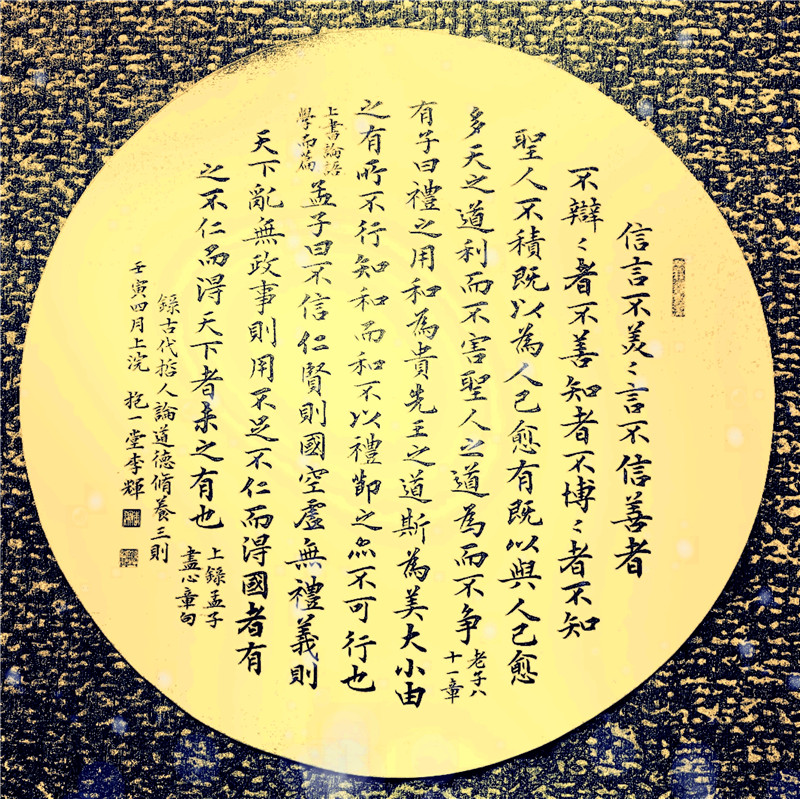 信言不美〻言不信善者
不辯〻者不善知者不博〻者不知
聖人不積既以為人己愈有既以與人己愈
多天之道利而不害聖人之道為而不争
老子八
十一章
有子曰禮之用和為貴先王之道斯為美大小由
之有所不行知和而和不以禮節之亦不可行也
上書論語
學而篇
孟子曰不信仁賢則國空虛無禮義則
天下亂無政事則用不足不仁而得國者有
之不仁而得天下者未之有也
上錄孟子
盡心章句
錄古代哲人論道德脩養三則
壬寅四月上浣 抱一堂李輝